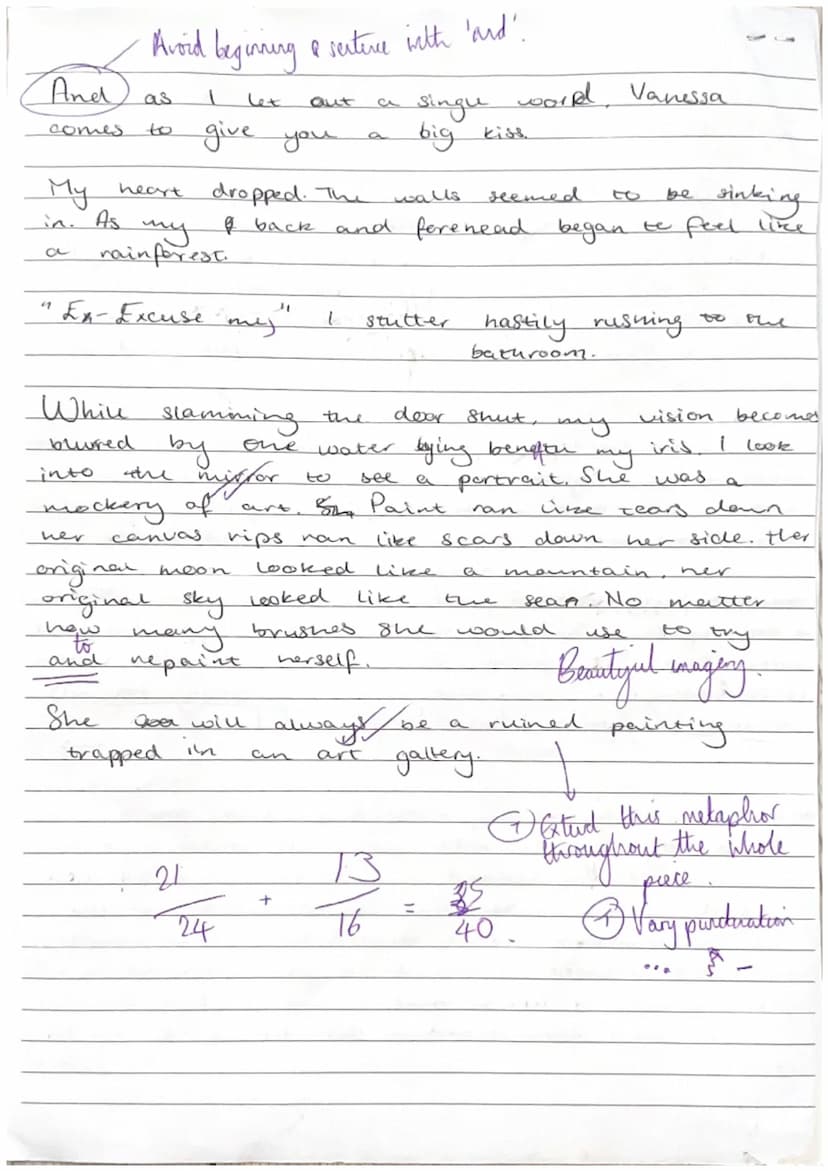 Avoid beginning a sentence with 'and'.
And as I let out a single word, Vanessa
comes to give you a big kiss.
My heart dropped. The walls seemed to be sinking
in. As my back and forehead began to feel like
a rainforest.
"Ex-Excuse me," I stutter hastily rushing to the
bathroom.
While slamming the door shut, my vision becomes
blured by the water lying beneath my iris. I look
into the mirror to see a portrait. She was a
mockery of art. Paint ran like tears down
her canvas rips ran like scars down her side. Her
original moon looked like a mountain, her
original sky looked like the sea. No matter
how many brushes she would use to try
to
and repaint herself.
Beautiful imagery.
She will always be a ruined painting
trapped in an art gallery.
T Extend this metaphor
throughout the whole
piece.
21/24 + 13/16 = 35/40.
T Vary punctuation
... ; -